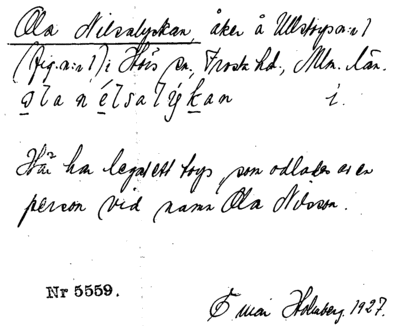 Ola Nilsalyckan, åker å Ullstorp n:r 1
(fig. n:r 1) i Hörs sn, Frosta hd., Mlm. län.
ola nélsalýkan i.
Här har legat ett torp, som odlades av en
person vid namn Ola Nilsson.
Nr 5559.
Holmberg. 1927.